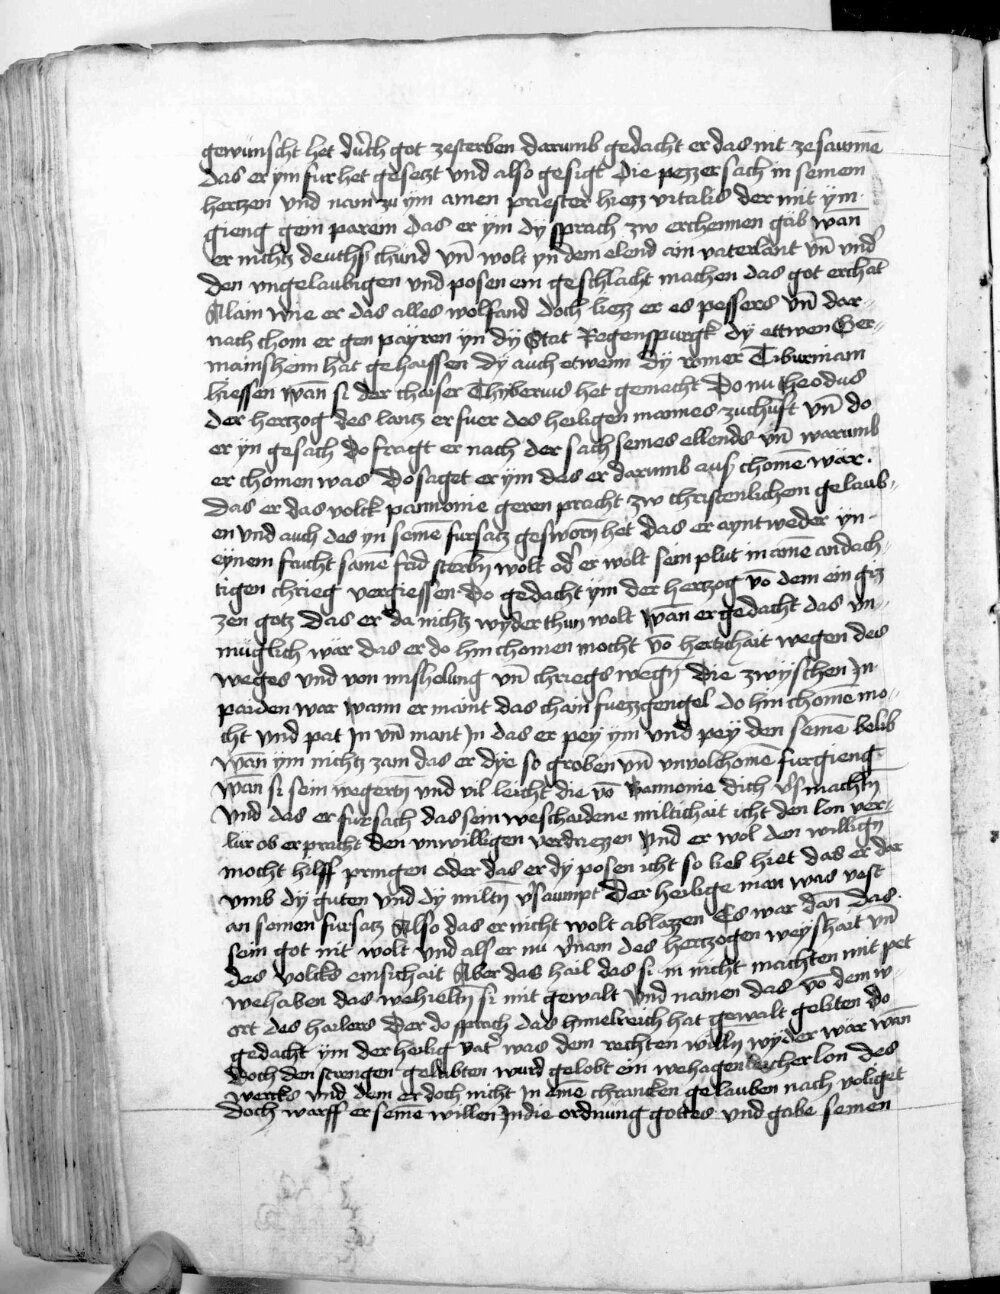 gewünscht het durch got zesterben darumb gedacht er das nit ze saumē
das er ym fur het gesetzt vnd also gesigt die pezzer sach in seinem
hertzen vnd nam zu ym ainen priester hiezz vitalis der mit ym
gieng gein parem das er ym dy sprach zw erchennen gäb wan̄
er nichtz deuthsch chünd vn̄ wolt yn dem elend ain vaterlant vn̄ vnd̓
den vngelaubigen vnd posen ein geschlacht machen das got erchāt
Alain wie er das alles wol fand doch liezz er es pessers vn̄ dar-
nach chom er gen payren yn dy Stat Regenspurgk dy ettwen Ger-
mainsheim hat gehaissen dy auch etwenn dy romer Tiburniam
hiessen wan̄ si der chaiser Thyberius het gemacht Do nu theodus
der hertzog des lantz erfuer des heiligen mannes zuchūft vn̄ do
er yn gesach do fragt er nach der sach seines ellends vn̄ warumb
er chomen was Do saget er ym das er darumb aus chomē wär.
das er das volck pannonie geren pracht zw christenlichem gelaub-
en vnd auch des yn seinē fursatz gesworn̄ het das er ayntweder yn
eynem frucht samē frid sterbn̄ wolt od̓ er wolt sein plut in ainē andach-
tigen chrieg vergiessen Do gedacht ym der hertzog vō dem ein giz
zen gotz das er da nichtz wyder thun wolt wan̄ er gedacht das vn-
müglich wär das er do hin chomen mocht vō hertichait wegen des
weges vnd von mishelung vn̄ chriegs wegn̄ die zwyschen In
paiden war wann er maint das chain fuezzgengel do hin chomē mo-
cht vnd pat In vn̄ mant In das er pey ym vnd pey den seinē belib
wan̄ ym nichtz zam das er dye so groben vn̄ vnvolchomē furgieng
wan̄ si sein wegertn̄ vnd vil leicht die vō Pannonie dich v̓smachtn̄
vnd das er fursach das sein weschaidene miltichait icht den lon ver-
lür ob er pracht den vnwilligen verdriezzen vnd er wol den willign̄
mocht hilff pringen oder das er dy posen icht so lieb hiet das er dar
vmb dy guten vnd dy miltn̄ v̓saumpt Der heilige man was vest
an seinen fursatz Also das er nicht wolt ablazzen Es war dan̄ das
sein got nit wolt vnd als er nu v̓nam des hertzogen weyshait vn̄
des volcks ainsichait Aber das hail das si in nicht machten mit pet
wehaben das wehieltn̄ si mit gewalt vnd namen das vō dem w-
ort des hailers Der do sprach das himelreich hat gewalt geliten do
gedacht ym der heilig vat̓ was dem rechten willn̄ wyder wär wan̄
Doch den strengen gelubten wurd gelobt ein wehagenleicher lon des
wercks vnd dem er doch nicht in einē chrancken gelauben nach volget
doch warff er seine willen In die ordnung gottes vnd gabe seinen